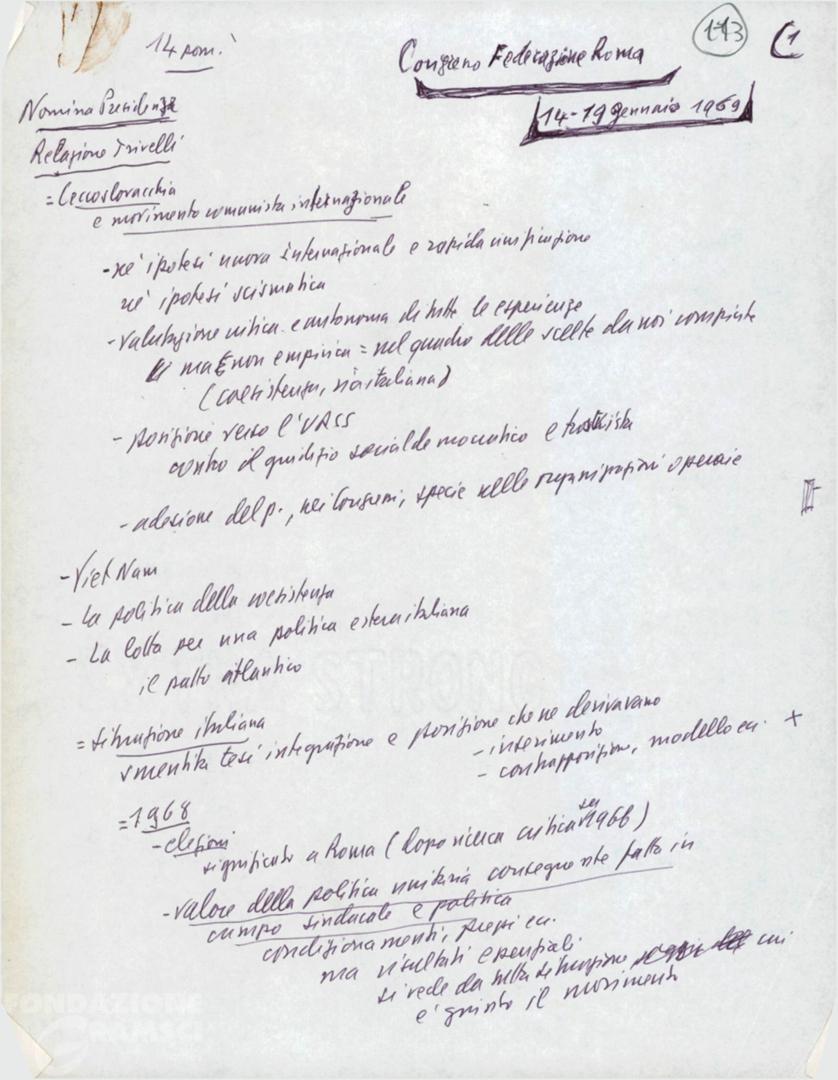 113
C1
14 pom.
Congresso Federazione Roma
14-19 gennaio 1969
Nomina Presidenza
Relazione Trivelli
= Cecoslovacchia
e movimento comunista internazionale
- né ipotesi nuova internazionale e rapida unificazione
né ipotesi scismatica
- valutazione critica e autonoma di tutte le esperienze
ma non empirica = nel quadro delle scelte da noi compiute
(coesistenza, via italiana)
- posizione verso l'URSS
contro il giudizio socialdemocratico e trotskista
- adesione del p., nei Congressi, specie nelle organizzazioni operaie
II
- Viet Nam
- La politica della coesistenza
- La lotta per una politica estera italiana
il patto atlantico
= situazione italiana
smentita tesi integrazione e posizione che ne derivavano
- inserimento
- contrapposizione, modello ecc. +
= 1968
- elezioni
significato a Roma (dopo ricerca critica sul 1966)
- valore della politica unitaria conseguente fatto in
campo sindacale e politica
condizionamenti, prezzi ecc.
ma risultati essenziali
si vede da tutta situazione cui
e' giunto il movimento
STRONG
FONDAZIONE
GRAMSCI